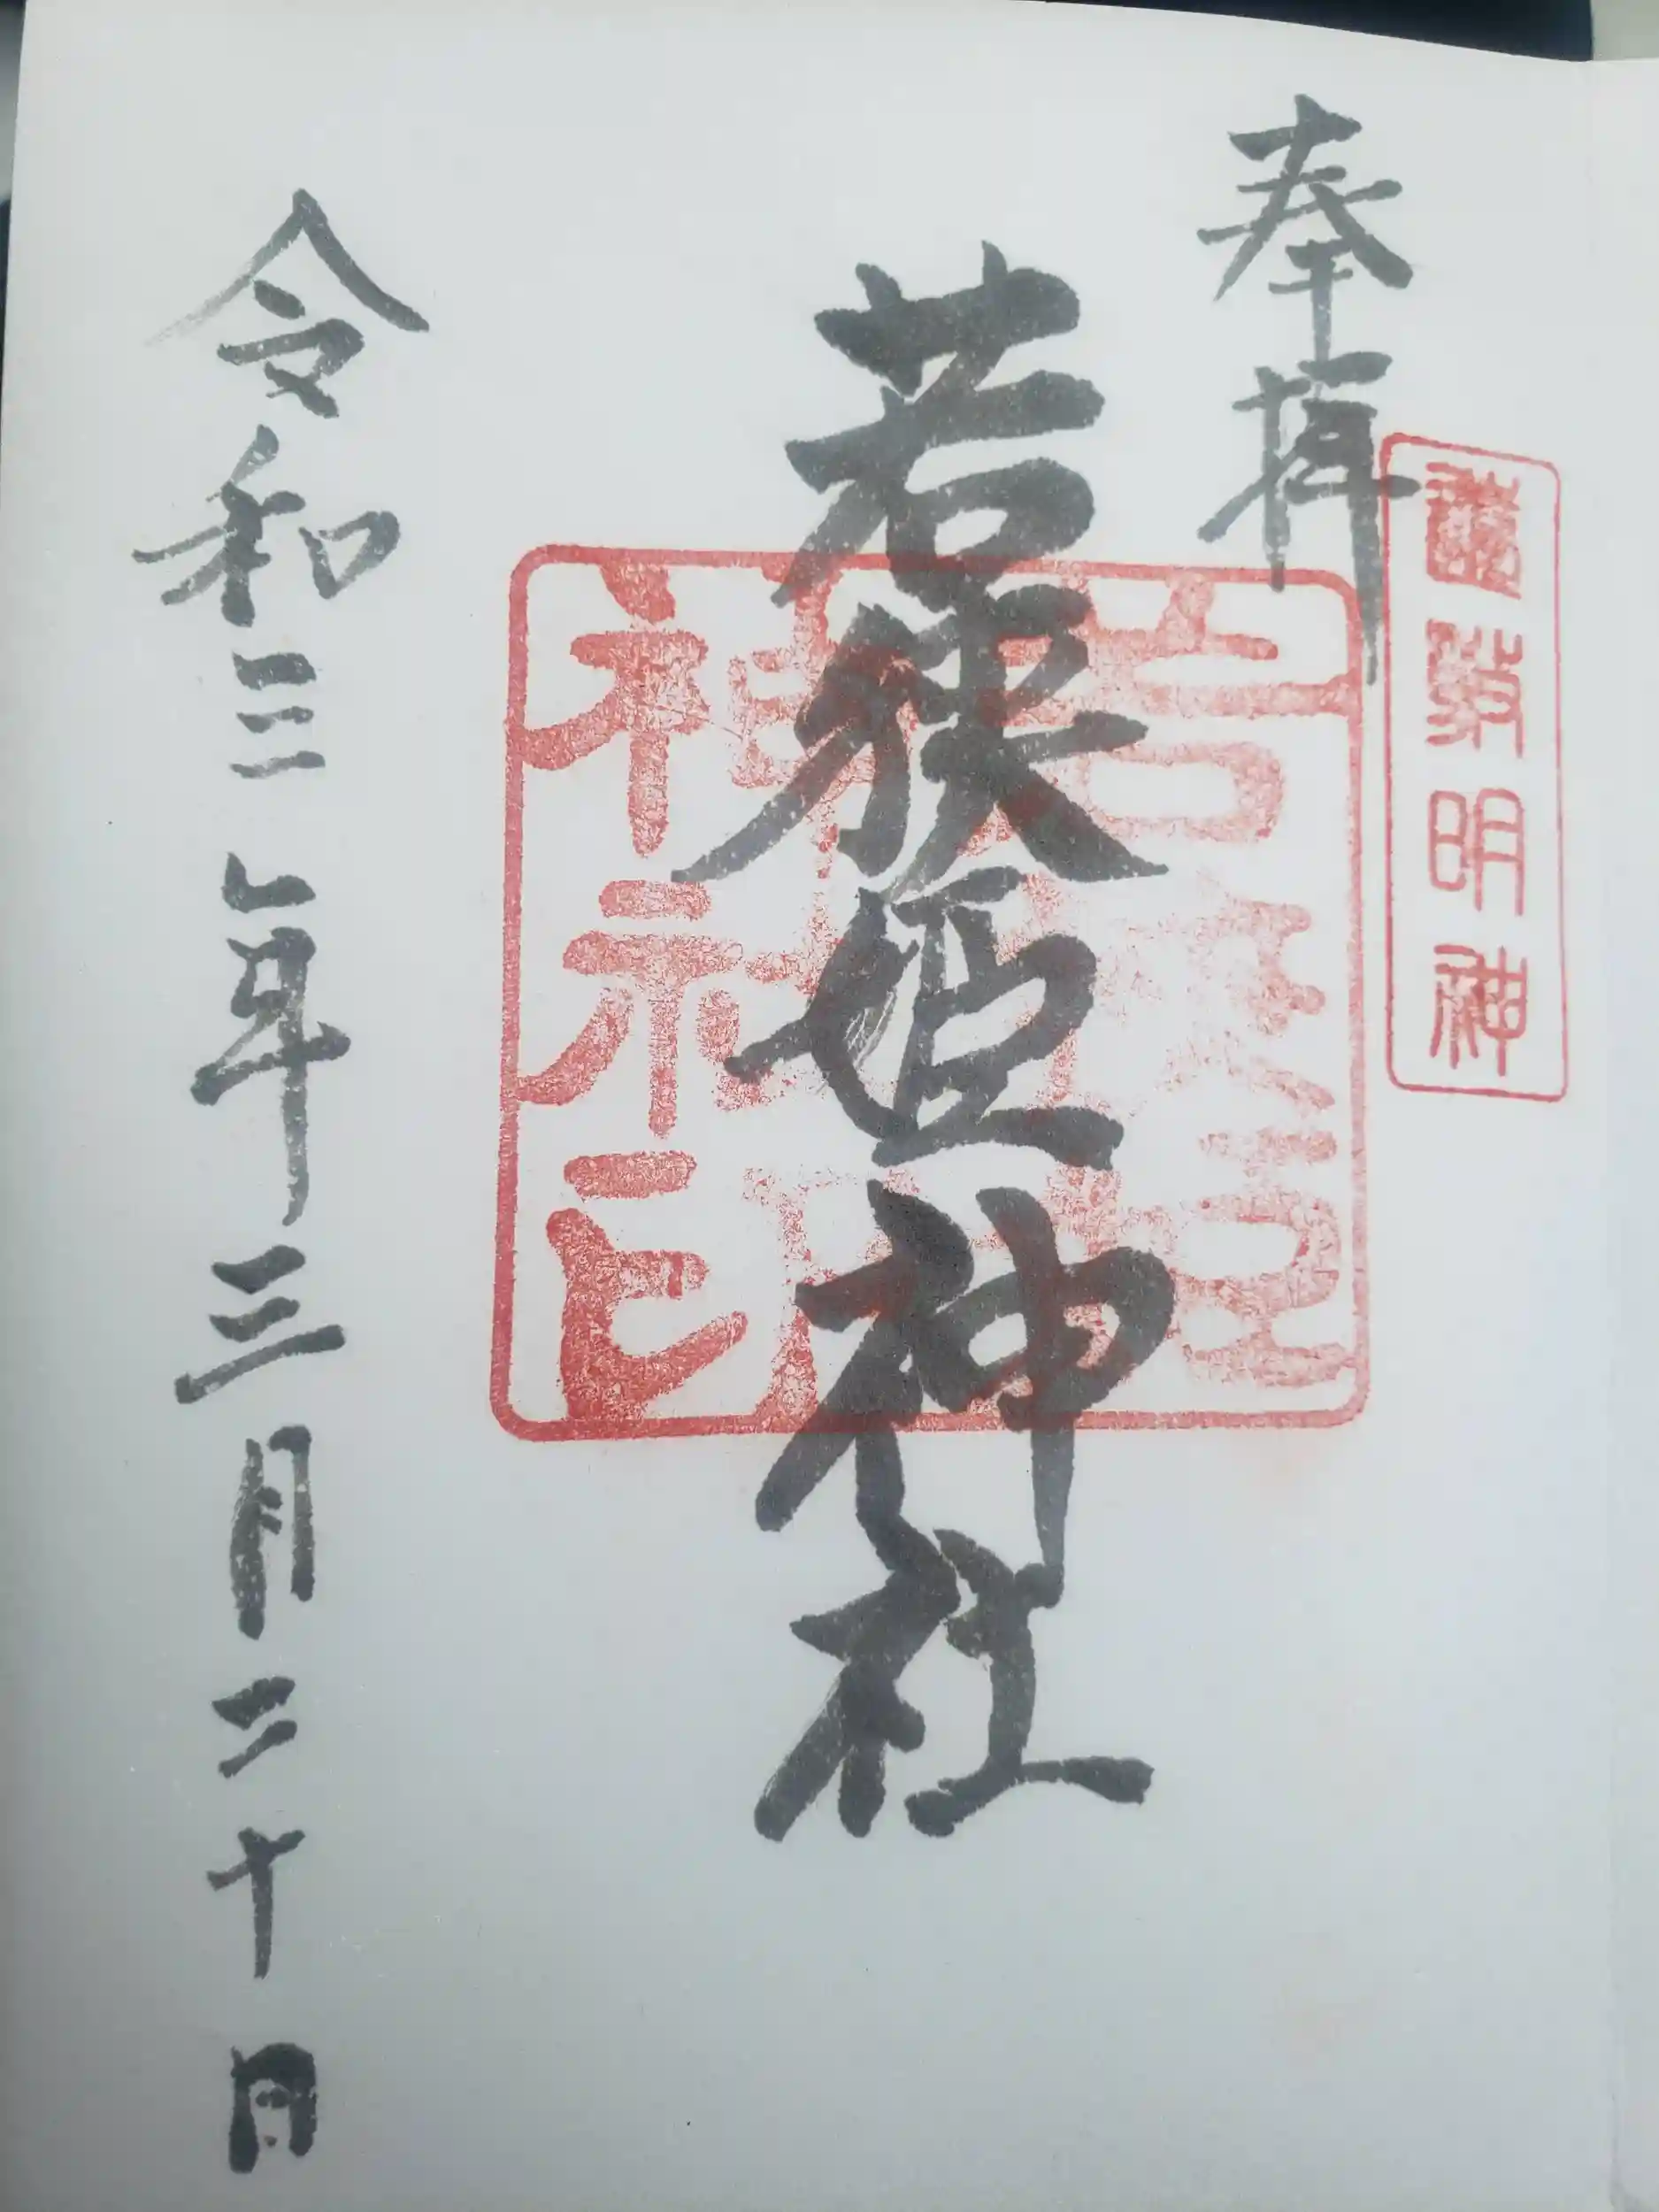 奉拝
明神
若狭姫神社
若狭姫
神社印
令和三年三月二十日